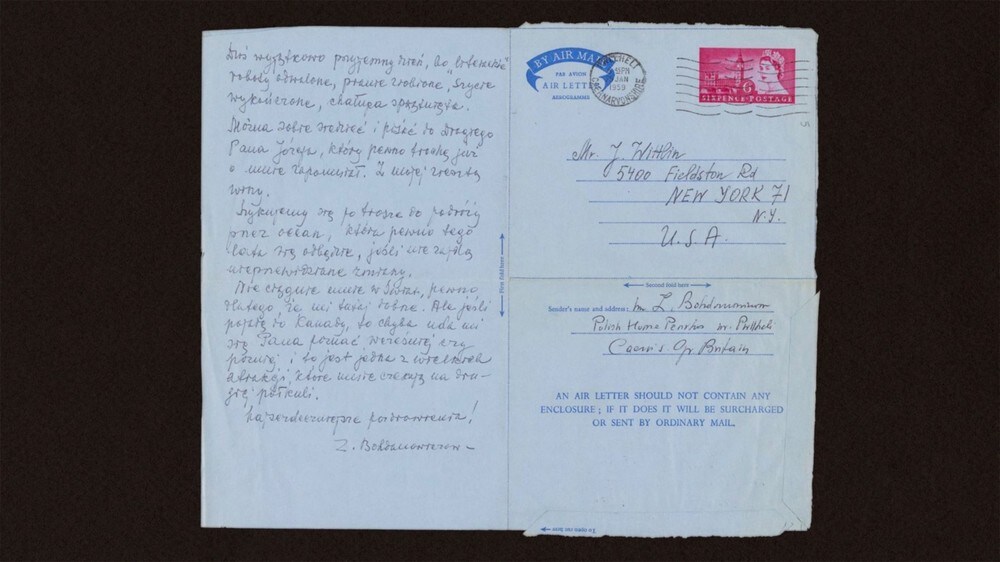 Dziś wyjątkowo przyjemny dzień, bo literackie
roboty odwalone, pranie zrobione, szycie
wykończone, chałupa sprzątnięta.
Można sobie siedzieć i pisać do Drogiego
Pana Józefa, który pewno trochę już
o mnie zapomniał. Z mojej zresztą
winy.
Szykujemy się po trosze do podróży
przez ocean, która pewno tego
lata się odbędzie, jeśli nie zajdą
nieprzewidziane zmiany.
Nie ciągnie mnie w świat, pewno
dlatego, że mi tutaj dobrze. Ale jeśli
pojadę do Kanady, to chyba uda mi
się Pana poznać wcześniej czy
później i to jest jedna z wielkich
atrakcji, które mnie czekają na dru-
giej półkuli.
Najserdeczniejsze pozdrowienia!
Z. Bohdanowiczowa
BY AIR MAIL
PAR AVION
AIR LETTER
AEROGRAMME
PWLLHELI
PM
JAN
1959
CAERNARVONSHIRE
6
SIXPENCE POSTAGE
5
Mr. J. Wittlin
5400 Fieldston Rd
NEW YORK 71
N.Y.
U.S.A.
First fold here
Second fold here
Sender's name and address: Z. Bohdanowiczowa
Polish Home Penrhos nr. Pwllheli
Caerns Gr Britain
AN AIR LETTER SHOULD NOT CONTAIN ANY
ENCLOSURE; IF IT DOES IT WILL BE SURCHARGED
OR SENT BY ORDINARY MAIL.
To open cut here